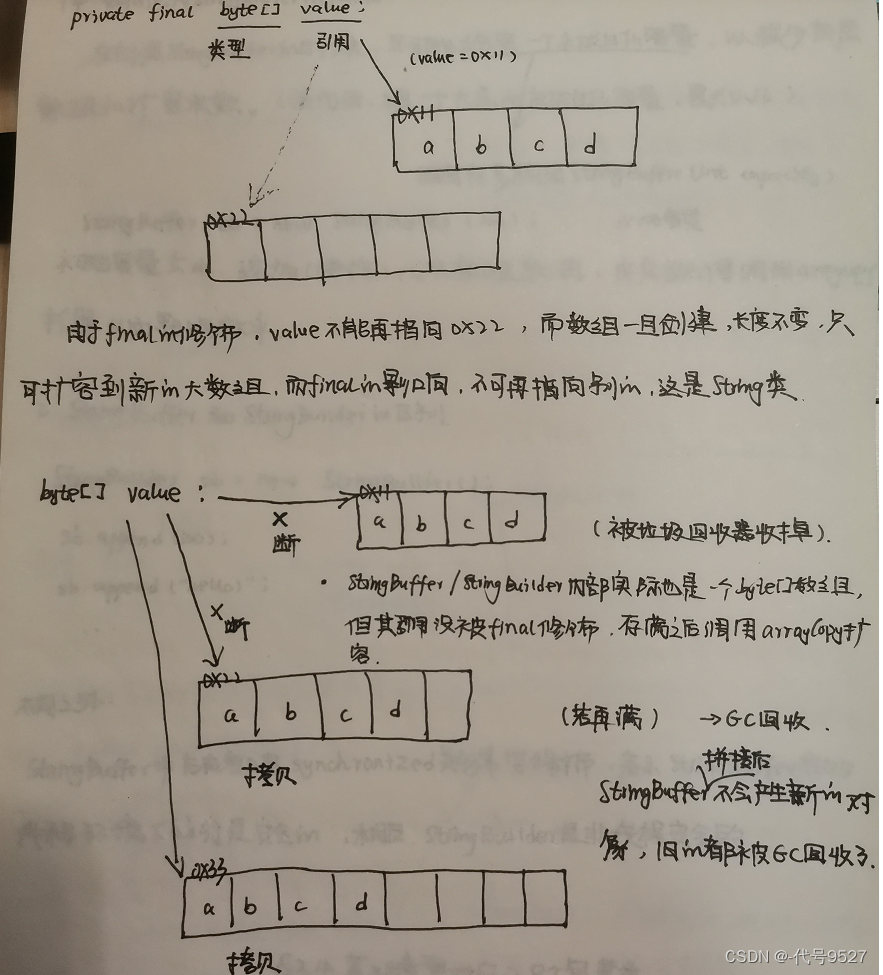 private final byte[] value;
类型 引用
(value=0X11)
0X11
a b c d
0X22
由于final的修饰,value不能再指向0X22,而数组一旦创建,长度不变,只
可扩容到新的大数组,而final的导向,不可再指向别的,这是String类
byte[] value :
0X11
a b c d
X
断
(被垃圾回收器收掉).
· StringBuffer/StringBuilder内部实际也是一个byte[]数组,
但其引用没被final修饰,存满之后调用arrayCopy扩
容.
X断
0X22
a b c d
(若再满) →GC回收.
拷贝
拼接后
StringBuffer不会产生新的对
象,旧的都被GC回收了.
0X33
a b c d
拷贝
CSDN @-代号9527